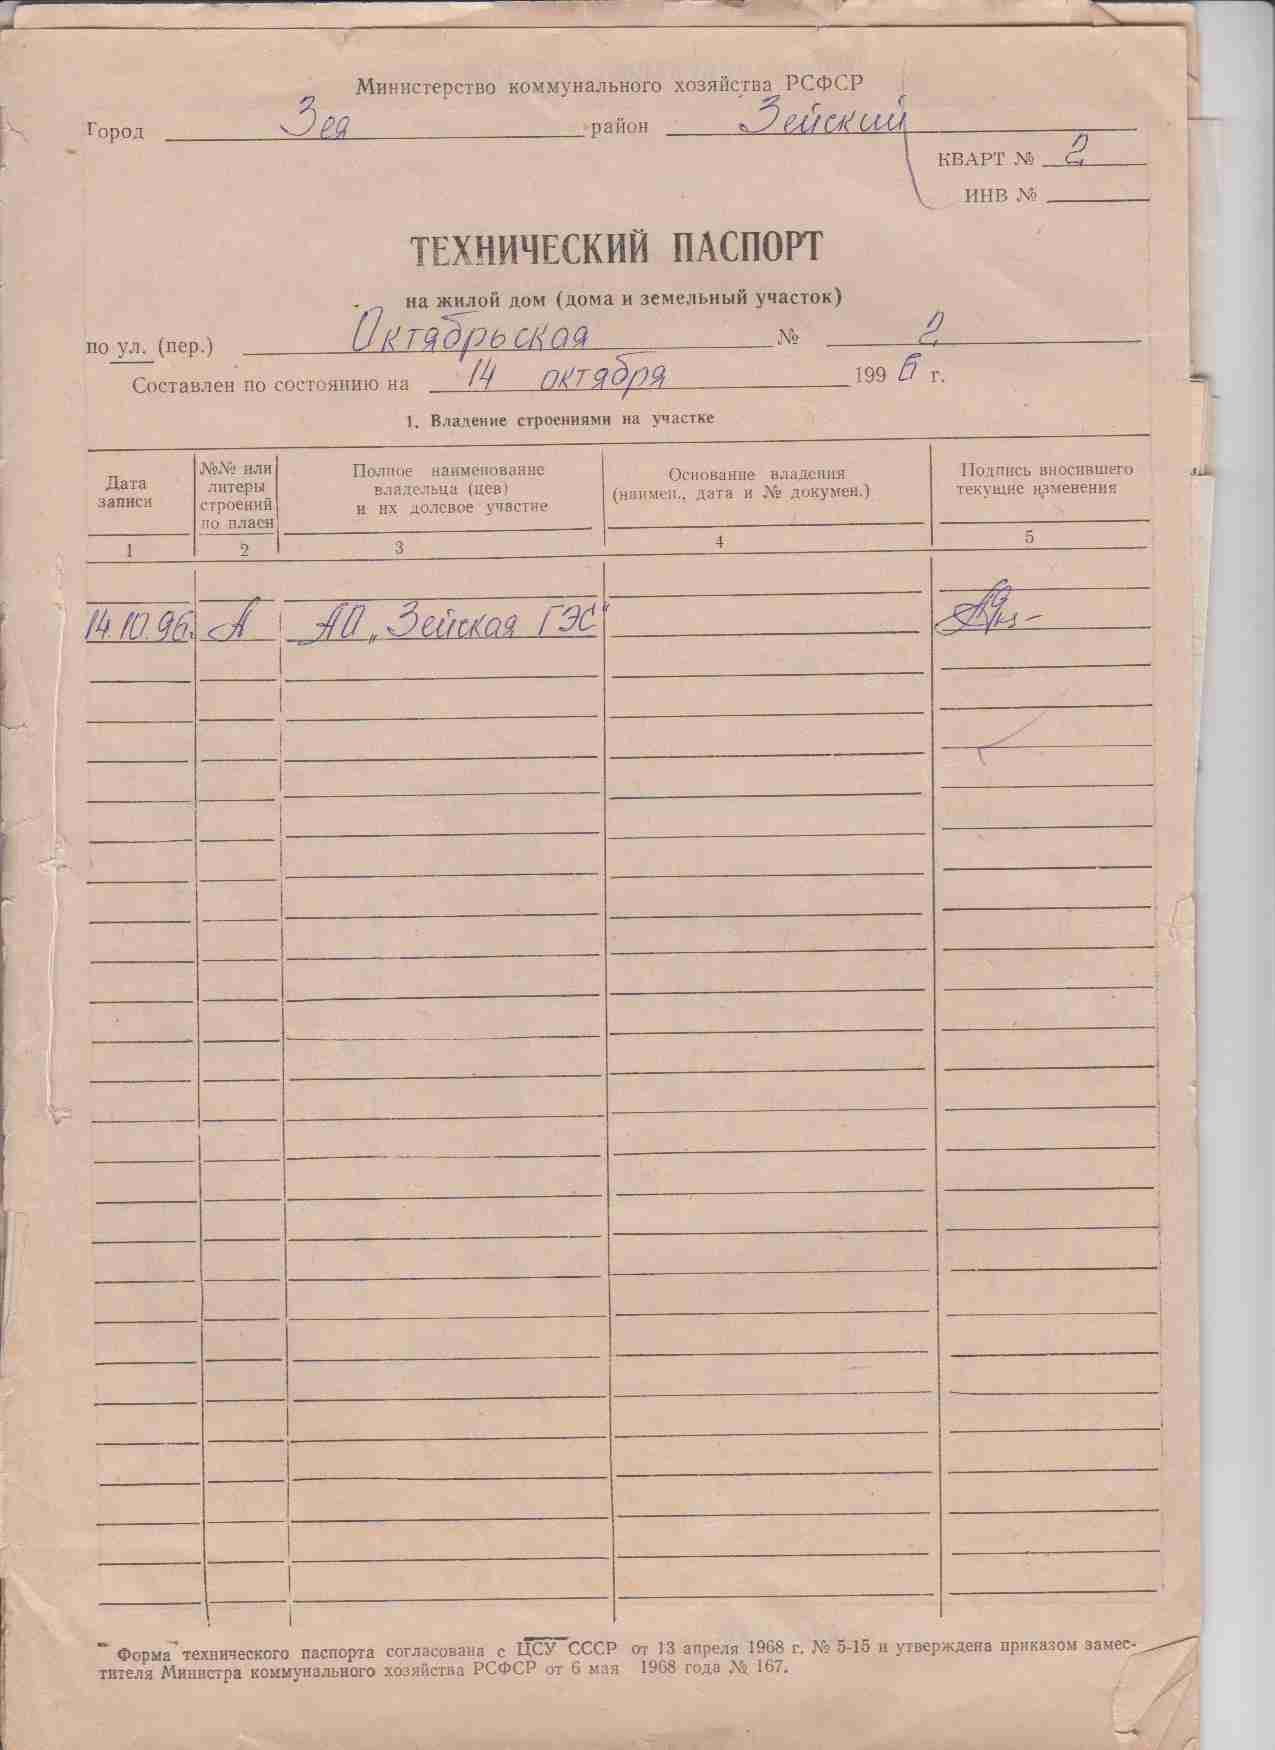 Министерство коммунального хозяйства РСФСР
Город Зея район Зейский
КВАРТ № 2
ИНВ №
ТЕХНИЧЕСКИЙ ПАСПОРТ
на жилой дом (дома и земельный участок)
по ул. (пер.) Октябрьская № 2
Составлен по состоянию на 14 октября 1996 г.
1. Владение строениями на участке
Дата записи
№№ или литеры строений по плаен
Полное наименование владельца (цев) и их долевое участие
Основание владения (наимен., дата и № докумен.)
Подпись вносившего текущие изменения
1 2 3 4 5
14.10.96. А АО „Зейская ГЭС"
Форма технического паспорта согласована с ЦСУ СССР от 13 апреля 1968 г. № 5-15 и утверждена приказом замес-
тителя Министра коммунального хозяйства РСФСР от 6 мая 1968 года № 167.